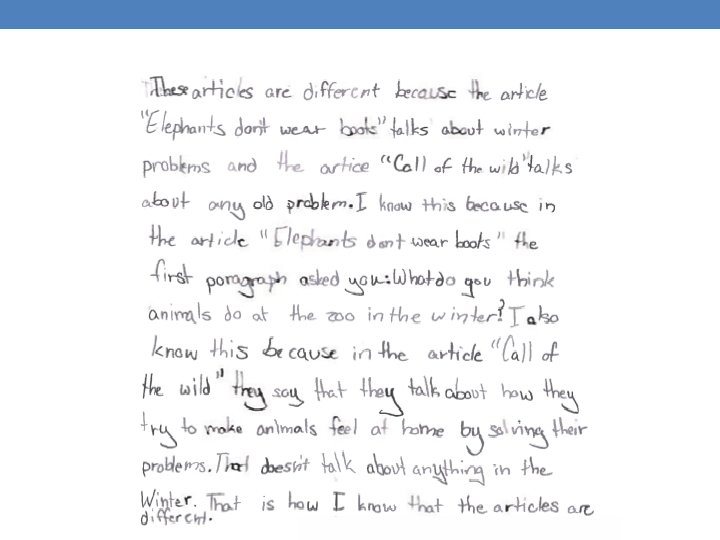 These articles are different because the article
"Elephants don't wear boots" talks about winter
problems and the artice "Call of the wild" talks
about any old problem. I know this because in
the article "Elephants dont wear boots" the
first poragraph asked you: What do you think
animals do at the zoo in the winter? I also
know this because in the article "Call of
the wild" they say that they talk about how they
try to make animals feel at home by solving their
problems. That doesn't talk about anything in the
Winter. That is how I know that the articles are
different.